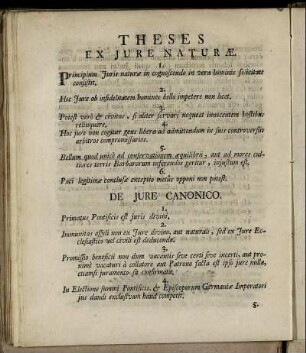 THESES
EX JURE NATURÆ.
1.
Principium Juris naturæ in cognoscendo in vera hominis felicitate
consistit.
2.
Hoc Jure ob infidelitatem homines bello impetere non licet.
3.
Potest verò & civitas, si aliter servari nequeat innocentem hostibus
relinquere.
4.
Hoc jure non cogitur gens libera ad admittendum in suis controversiis
arbitros compromissarios.
5.
Bellum quod unicè ad conservationem æquilibrii, aut ad mores cul-
tiores terris Barbarorum inferendos geritur, injustum est.
6.
Paci legitimæ conclusæ exceptio metûs opponi non potest.
DE JURE CANONICO.
1.
Primatus Pontificis est juris divini.
2.
Immunitas asyli non ex Jure divino, aut naturali, sed ex Jure Ec-
clesiastico vel civili est deducenda.
3.
Promissio beneficii non dum vacantis sive certi sive incerti, aut pro-
ximè vacaturi à collatore aut Patrono facta est ipso jure nulla,
etiamsi juramento sit confirmata.
4.
In Electione summi Pontificis, & Episcoporum Germaniæ Imperatori
jus dandi exclusivam haud competit.
5.